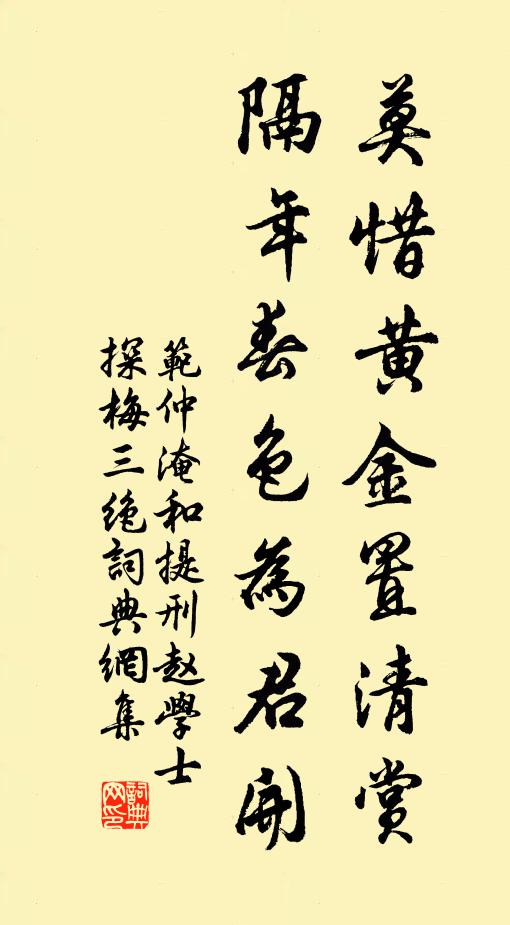 莫惜黃金置清賞
隔年春色為君開
範仲淹和提刑趙學士
探梅三絕詞典網集
詞典
网印